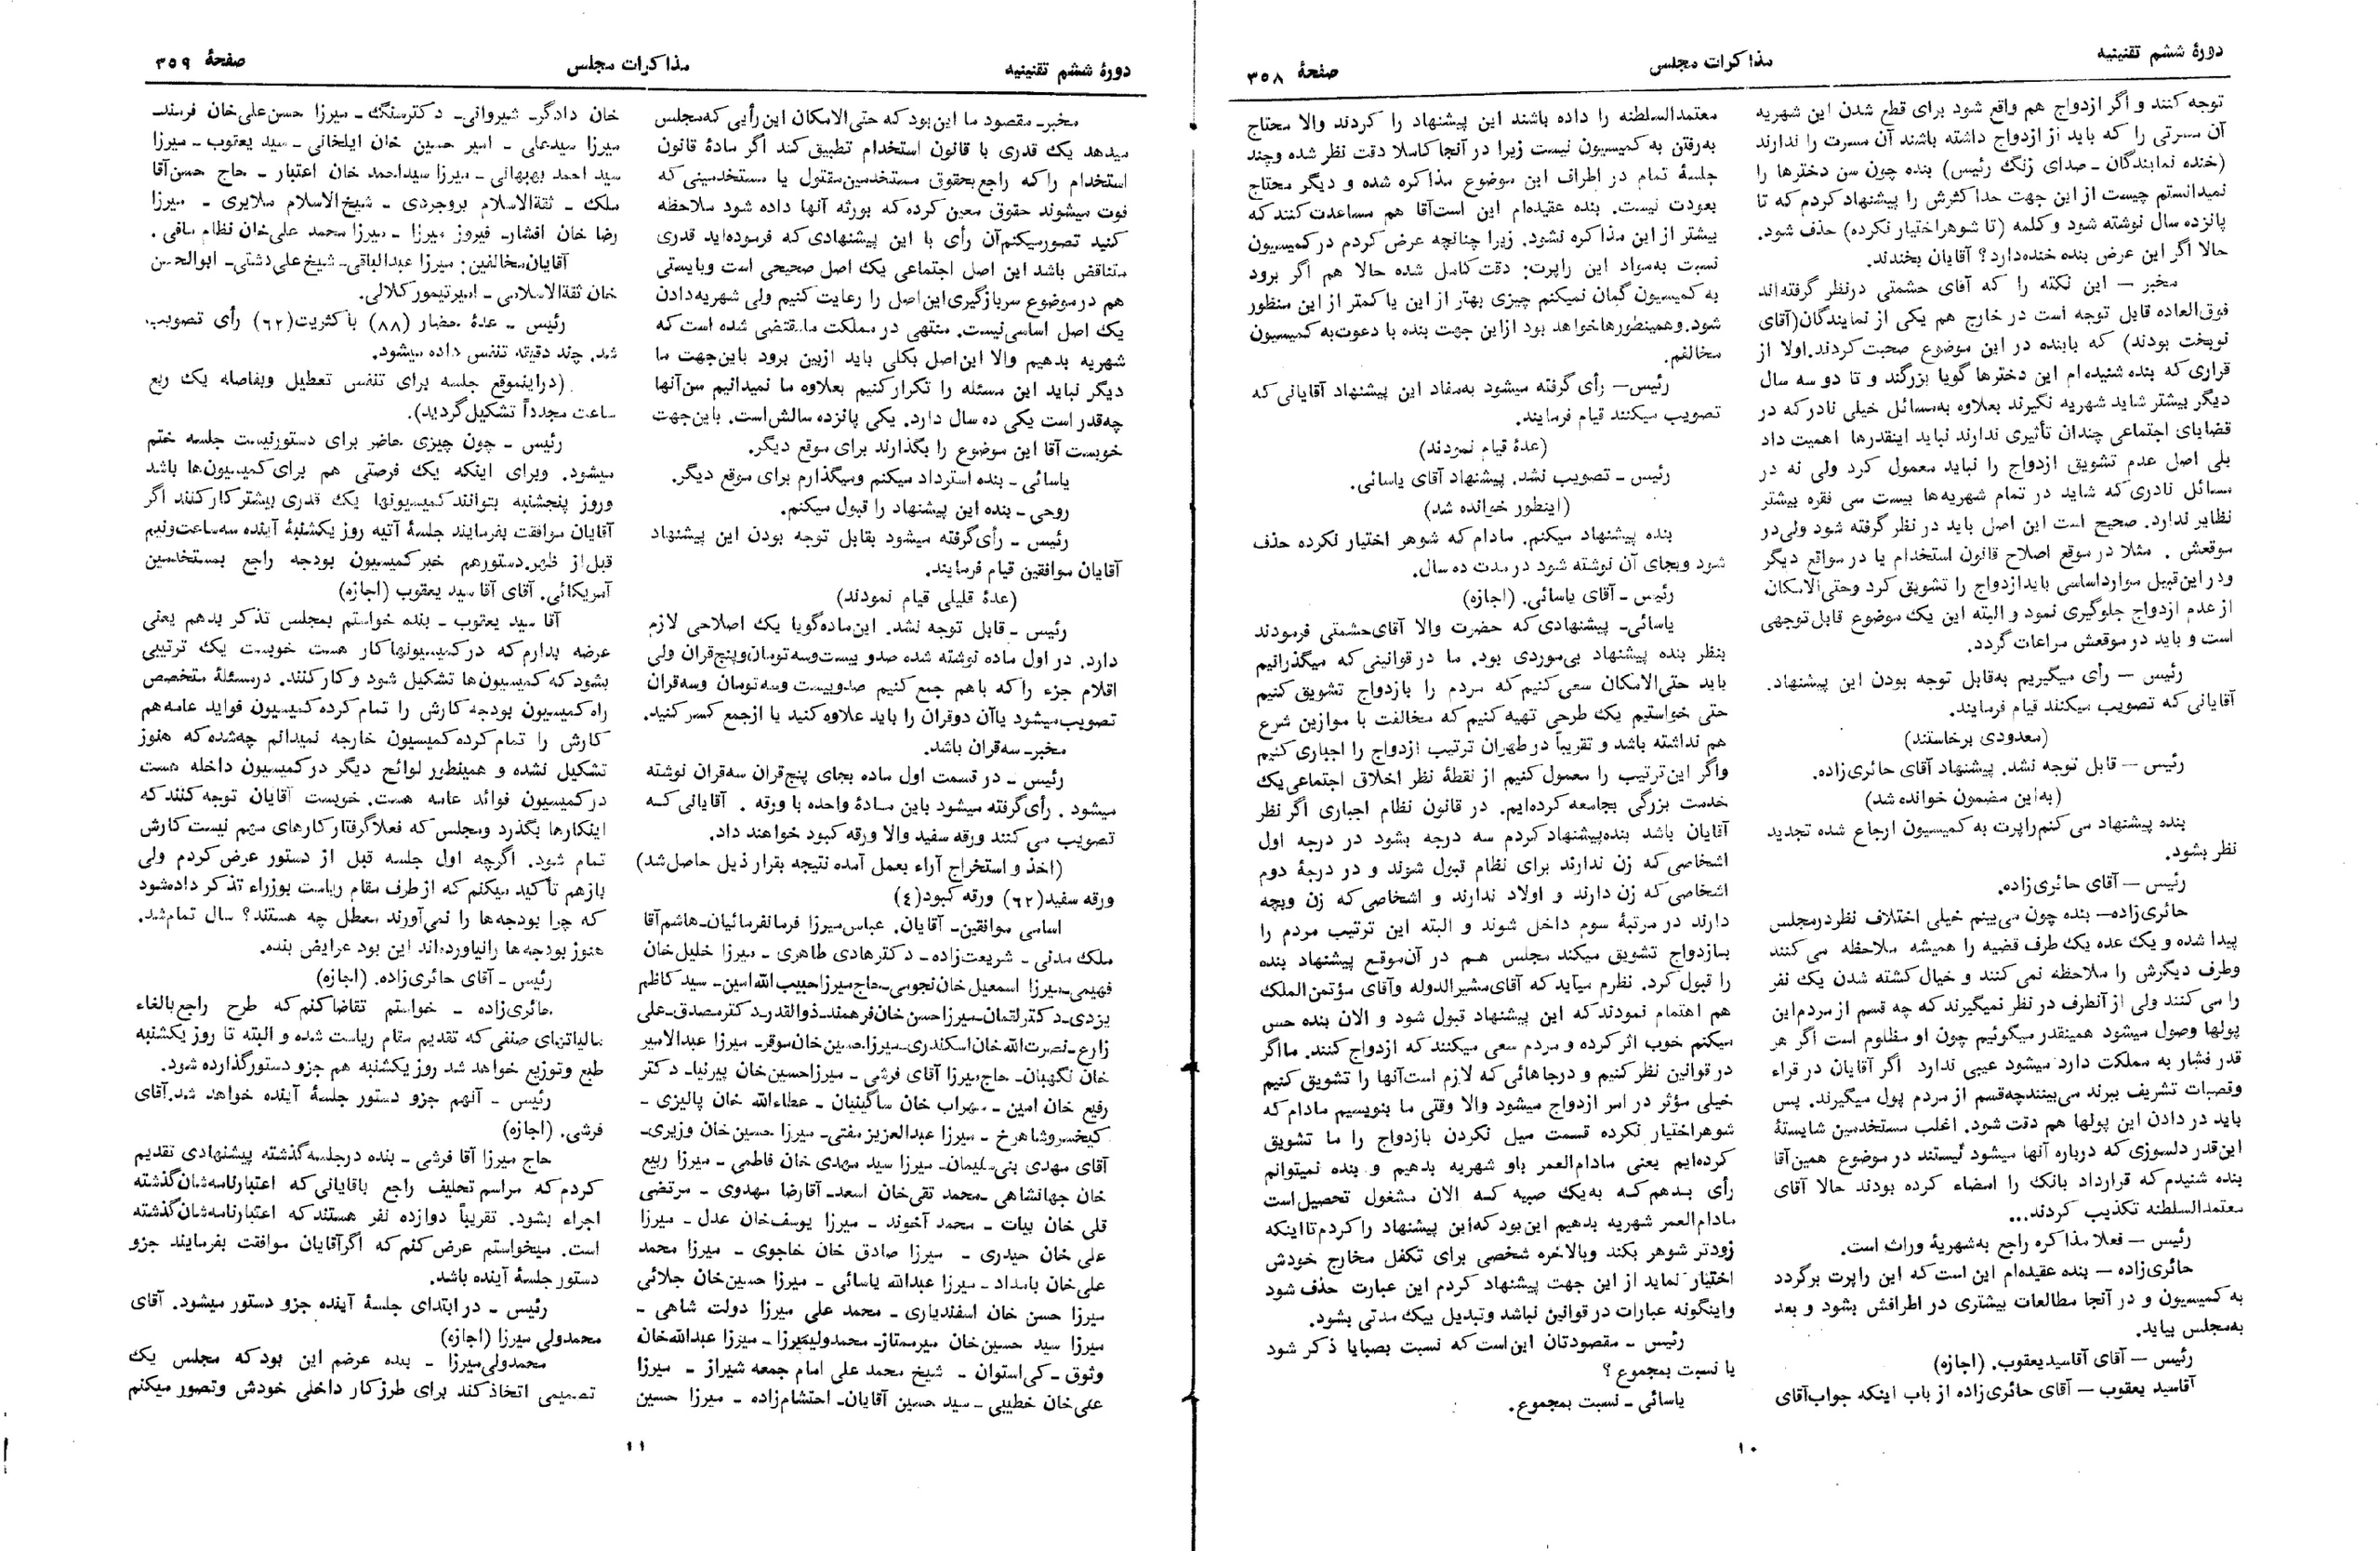 دورهٔ ششم تقنینیه
مذاکرات مجلس
صفحهٔ ۳۵۸
توجه کنند و اگر ازدواج هم واقع شود برای قطع شدن این شهریه
آن مسرتی را که باید از ازدواج داشته باشند آن مسرت را ندارند
(خنده نمایندگان - صدای زنگ رئیس) بنده چون سن دخترها را
نمیدانستم چیست از این جهت حداکثرش را پیشنهاد کردم که تا
پانزده سال نوشته شود و کلمه (تا شوهراختیار نکرده) حذف شود.
حالا اگر این عرض بنده خنده‌دارد؟ آقایان بخندند.
مخبر — این نکته را که آقای حشمتی درنظر گرفته‌اند
فوق‌العاده قابل توجه است در خارج هم یکی از نمایندگان(آقای
نوبخت بودند) که بابنده در این موضوع صحبت کردند.اولا از
قراری که بنده شنیده‌ام این دخترها گویا بزرگند و تا دو سه سال
دیگر بیشتر شاید شهریه نگیرند بعلاوه به‌مسائل خیلی نادر که در
قضایای اجتماعی چندان تأثیری ندارند نباید اینقدرها اهمیت داد
بلی اصل عدم تشویق ازدواج را نباید معمول کرد ولی نه در
مسائل نادری که شاید در تمام شهریه‌ها بیست سی فقره بیشتر
نظایر ندارد. صحیح است این اصل باید در نظر گرفته شود ولی‌در
موقعش . مثلا در موقع اصلاح قانون استخدام یا در مواقع دیگر
ودر این‌قبیل مواردا‌ساسی بایدازدواج را تشویق کرد وحتی‌الامکان
از عدم ازدواج جلوگیری نمود و البته این یک موضوع قابل‌توجهی
است و باید در موقعش مراعات گردد.
رئیس — رأی میگیریم به‌قابل توجه بودن این پیشنهاد.
آقایانی که تصویب میکنند قیام فرمایند.
(معدودی برخاستند)
رئیس — قابل توجه نشد. پیشنهاد آقای حائری‌زاده.
(به‌این مضمون خوانده شد)
بنده پیشنهاد می کنم‌راپرت به کمیسیون ارجاع شده تجدید
نظر بشود.
رئیس — آقای حائری‌زاده.
حائری‌زاده— بنده چون می‌بینم خیلی اختلاف نظردرمجلس
پیدا شده و یک عده یک طرف قضیه را همیشه ملاحظه می کنند
وطرف دیگرش را ملاحظه نمی کنند و خیال کشته شدن یک نفر
را می کنند ولی از آنطرف در نظر نمیگیرند که چه قسم از مردم‌این
پولها وصول میشود همینقدر میگوئیم چون او مظلوم است اگر هر
قدر فشار به مملکت دارد میشود عیبی ندارد اگر آقایان در قراء
وقصبات تشریف ببرند می‌بینندچه‌قسم از مردم پول میگیرند. پس
باید در دادن این پولها هم دقت شود. اغلب مستخدمین شایستهٔ
این‌قدر دلسوزی که درباره آنها میشود نیستند در موضوع همین‌آقا
بنده شنیدم که قرارداد بانک را امضاء کرده بودند حالا آقای
معتمدالسلطنه تکذیب کردند...
رئیس — فعلا مذاکره راجع به‌شهریهٔ وراث است.
حائری‌زاده — بنده عقیده‌ام این است که این راپرت برگردد
به کمیسیون و در آنجا مطالعات بیشتری در اطرافش بشود و بعد
به‌مجلس بیاید.
رئیس — آقای آقاسیدیعقوب. (اجازه)
آقاسید یعقوب — آقای حائری‌زاده از باب اینکه جواب‌آقای
معتمدالسلطنه را داده باشند این پیشنهاد را کردند والا محتاج
به‌رفتن به کمیسیون نیست زیرا در آنجا کاملا دقت نظر شده وچند
جلسهٔ تمام در اطراف این موضوع مذاکره شده و دیگر محتاج
بعودت نیست. بنده عقیده‌ام این است‌آقا هم مساعدت کنند که
بیشتر از این مذاکره نشود. زیرا چنانچه عرض کردم در کمیسیون
نسبت به‌مواد این راپرت: دقت کامل شده حالا هم اگر برود
به کمیسیون گمان نمیکنم چیزی بهتر از این یا کمتر از این منظور
شود.وهمینطورهاخواهد بود ازاین جهت بنده با دعوت‌به کمیسیون
مخالفم.
رئیس— رأی گرفته میشود به‌مفاد این پیشنهاد آقایانی که
تصویب میکنند قیام فرمایند.
(عدهٔ قیام نمودند)
رئیس ـ تصویب نشد. پیشنهاد آقای یاسائی.
(اینطور خوانده شد)
بنده پیشنهاد میکنم. مادام که شوهر اختیار نکرده حذف
شود وبجای آن نوشته شود در مدت ده سال.
رئیس ـ آقای یاسائی. (اجازه)
یاسائی‌ـ پیشنهادی که حضرت والا آقای‌حشمتی فرمودند
بنظر بنده پیشنهاد بی‌موردی بود. ما در قوانینی که میگذرانیم
باید حتی‌الامکان سعی کنیم که مردم را بازدواج تشویق کنیم
حتی خواستیم یک طرحی تهیه کنیم که مخالفت با موازین شرع
هم نداشته باشد و تقریباً در طهران ترتیب ازدواج را اجباری کنیم
واگر این‌ترتیب را معمول کنیم از نقطهٔ نظر اخلاق اجتماعی‌یک
خدمت بزرگی بجامعه کرده‌ایم. در قانون نظام اجباری اگر نظر
آقایان باشد بنده‌پیشنهادکردم سه درجه بشود در درجه اول
اشخاصی که زن ندارند برای نظام قبول شوند و در درجهٔ دوم
اشخاصی که زن دارند و اولاد ندارند و اشخاصی که زن وبچه
دارند در مرتبهٔ سوم داخل شوند و البته این ترتیب مردم را
بازدواج تشویق میکند مجلس هم در آن‌موقع پیشنهاد بنده
را قبول کرد. نظرم میآید که آقای‌مشیرالدوله وآقای مؤتمن‌الملک
هم اهتمام نمودند که این پیشنهاد قبول شود و الان بنده حس
میکنم خوب اثر کرده و مردم سعی میکنند که ازدواج کنند. مااگر
در قوانین نظر کنیم و درجاهائی که لازم است‌آنها را تشویق کنیم
خیلی مؤثر در امر ازدواج میشود والا وقتی ما بنویسیم مادام که
شوهراختیار نکرده قسمت میل نکردن بازدواج را ما تشویق
کرده‌ایم یعنی مادام‌العمر باو شهریه بدهیم و بنده نمیتوانم
رأی بدهم که به‌یک صبیه که الان مشغول تحصیل‌است
مادام‌العمر شهریه بدهیم این‌بود که‌این پیشنهاد را کردم تااینکه
زودتر شوهر بکند وبالاخره شخصی برای تکفل مخارج خودش
اختیار نماید از این جهت پیشنهاد کردم این عبارت حذف شود
واینگونه عبارات در قوانین نباشد وتبدیل بیک مدتی بشود.
رئیس ـ مقصودتان این‌است که نسبت بصبایا ذکر شود
یا نسبت بمجموع ؟
یاسائی ـ نسبت بمجموع.
۱۰
دورهٔ ششم تقنینیه
مذاکرات مجلس
صفحهٔ ۳۵۹
مخبرـ مقصود ما این‌بود که حتی‌الامکان این‌رأیی که‌مجلس
میدهد یک قدری با قانون استخدام تطبیق کند اگر مادهٔ قانون
استخدام را که راجع بحقوق مستخدمین‌مقتول یا مستخدمینی که
فوت میشوند حقوق معین کرده که بورثه آنها داده شود ملاحظه
کنید تصورمیکنم‌آن رأی با این پیشنهادی که فرموده‌اید قدری
متناقض باشد این اصل اجتماعی یک اصل صحیحی است وبایستی
هم در موضوع سربازگیری‌این‌اصل را رعایت کنیم ولی شهریه‌دادن
یک اصل اساسی‌نیست. منتهی در مملکت ما‌مقتضی شده است که
شهریه بدهیم والا این‌اصل بکلی باید ازبین برود باین‌جهت ما
دیگر نباید این مسئله را تکرارکنیم بعلاوه ما نمیدانیم سن‌آنها
چه‌قدر است یکی ده سال دارد. یکی پانزده سالش‌است. باین‌جهت
خوبست آقا این موضوع را بگذارند برای موقع دیگر.
یاسائی ـ بنده استرداد میکنم ومیگذارم برای موقع دیگر.
روحی ـ بنده این پیشنهاد را قبول میکنم.
رئیس ـ رأی‌گرفته میشود بقابل توجه بودن این پیشنهاد
آقایان موافقین قیام فرمایند.
(عدهٔ قلیلی قیام نمودند)
رئیس ـ قابل توجه نشد. این‌ماده‌گویا یک اصلاحی لازم
دارد. در اول ماده نوشته شده صدو بیست‌وسه‌تومان‌وپنج‌قران ولی
اقلام جزء را که باهم جمع کنیم صدوبیست وسه‌تومان وسه‌قران
تصویب‌میشود یاآن دوقران را باید علاوه کنید یا ازجمع کسر کنید.
مخبرـ سه‌قران باشد.
رئیس ـ در قسمت اول ماده بجای پنج‌قران سه‌قران نوشته
میشود . رأی‌گرفته میشود باین مادهٔ واحده با ورقه . آقایانی که
تصویب می کنند ورقه سفید والا ورقه کبود خواهند داد.
(اخذ و استخراج آراء بعمل آمده نتیجه بقرار ذیل حاصل‌شد)
ورقه سفید(۶۲) ورقه کبود(٤)
اسامی موافقین‌ـ آقایان. عباس‌میرزا فرمانفرمائیان‌ـ‌هاشم‌آقا
ملک مدنی ـ شریعت‌زاده‌ـ دکترهادی طاهری ـ میرزا خلیل‌خان
فهیمی‌ـ‌میرزا اسمعیل خان‌نجومی‌ـ‌حاج‌میرزاحبیب الله‌امین‌ـ سید کاظم
یزدی‌ـ‌دکترلقمان‌ـ‌میرزاحسن خان‌فرهمند‌ـ‌ذوالقدرـ‌دکترمصدق‌ـ‌علی
زارع‌ـ‌نصرت‌الله خان‌اسکندری‌ـ‌میرزاحسین‌خان‌موقرـ میرزا عبدالامیر
خان نگهبان‌ـ حاج‌میرزا آقای فرشی ـ میرزاحسین‌خان پیرنیاـ دکتر
رفیع خان امین ـ سهراب خان ساگینیان ـ عطاءالله خان پالیزی ـ
کیخسروشاهرخ ـ میرزا عبدالعزیز مفتی‌ـ میرزا حسین خان وزیری‌ـ
آقای مهدی بنی‌سلیمان‌ـ میرزا سید مهدی خان فاطمی ـ میرزا ربیع
خان جهانشاهی ـ‌محمد تقی‌خان اسعد‌ـ آقارضا مهدوی ـ مرتضی
قلی خان بیات ـ محمد آخوند ـ میرزا یوسف‌خان عدل ـ میرزا
علی خان حیدری ـ میرزا صادق خان خاجوی ـ میرزا محمد
علی‌خان بامداد ـ میرزا عبدالله یاسائی ـ میرزا حسین‌خان جلائی
میرزا حسن خان اسفندیاری ـ محمد علی میرزا دولت شاهی ـ
میرزا سید حسین‌خان میرممتازـ محمدولیمیرزا ـ میرزا عبدالله‌خان
وثوق ـ کی‌استوان ـ شیخ محمد علی امام جمعه شیراز ـ میرزا
علی‌خان خطیبی ـ سید حسین آقایان‌ـ احتشام‌زاده ـ میرزا حسین
خان دادگرـ شیروانی‌ـ دکترسنگ ـ میرزا حسن‌علی‌خان فرمندـ
میرزا سیدعلی ـ امیر حسین خان ایلخانی ـ سید یعقوب ـ میرزا
سید احمد بهبهانی ـ میرزا سیداحمد خان اعتبار ـ حاج حسن‌آقا
ملک ـ ثقةالاسلام بروجردی ـ شیخ‌الاسلام ملایری ـ میرزا
رضا خان افشار‌ـ فیروز میرزا ـ میرزا محمد علی‌خان نظام مافی .
آقایان‌مخالفین: میرزا عبدالباقی‌ـ شیخ علی‌دشتی‌ـ ابوالحسن
خان ثقةالاسلامی ـ امیرتیمورکلالی.
رئیس ـ عدهٔ حضار (۸۸) با کثریت(۶۲) رأی تصویب
شد. چند دقیقه تنفس داده میشود.
(دراینموقع جلسه برای تنفس تعطیل وبفاصله یک ربع
ساعت مجدداً تشکیل‌گردید).
رئیس ـ چون چیزی حاضر برای دستورنیست جلسه ختم
میشود. وبرای اینکه یک فرصتی هم برای کمیسیون‌ها باشد
وروز پنجشنبه بتوانند کمیسیونها یک قدری بیشتر کار کنند اگر
آقایان موافقت بفرمایند جلسهٔ آتیه روز یکشنبهٔ آینده سه‌ساعت‌ونیم
قبل‌از ظهر.دستورهم خبر کمیسیون بودجه راجع بمستخدمین
آمریکائی. آقای آقا سید یعقوب (اجازه)
آقا سید یعقوب ـ بنده خواستم بمجلس تذکر بدهم یعنی
عرضه بدارم که در کمیسیونهاکار هست خوبست یک ترتیبی
بشود که کمیسیون‌ها تشکیل شود و کار کنند. درمسئلهٔ متخصص
راه کمیسیون بودجه کارش را تمام کرده کمیسیون فواید عامه‌هم
کارش را تمام کرده کمیسیون خارجه نمیدانم چه‌شده که هنوز
تشکیل نشده و همینطور لوائح دیگر در کمیسیون داخله هست
در کمیسیون فوائد عامه هست. خوبست آقایان توجه کنند که
اینکارها بگذرد ومجلس که فعلا گرفتار کارهای مهم نیست کارش
تمام شود. اگرچه اول جلسه قبل از دستور عرض کردم ولی
بازهم تأکید میکنم که از طرف مقام ریاست بوزراء تذکر داده‌شود
که چرا بودجه‌ها را نمی‌آورند معطل چه هستند؟ سال تمام‌شد.
هنوز بودجه‌ها رانیاورده‌اند این بود عرایض بنده.
رئیس ـ آقای حائری‌زاده. (اجازه)
حائری‌زاده ـ خواستم تقاضا کنم که طرح راجع بالغاء
مالیاتهای صنفی که تقدیم مقام ریاست شده و البته تا روز یکشنبه
طبع وتوزیع خواهد شد روز یکشنبه هم جزو دستورگذارده شود.
رئیس ـ آنهم جزو دستور جلسهٔ آینده خواهد شد.آقای
فرشی. (اجازه)
حاج میرزا آقا فرشی ـ بنده درجلسه‌گذشته پیشنهادی تقدیم
کردم که مراسم تحلیف راجع باقایانی که اعتبارنامه‌شان‌گذشته
اجراء بشود. تقریباً دوازده نفر هستند که اعتبارنامه‌شان‌گذشته
است. میخواستم عرض کنم که اگرآقایان موافقت بفرمایند جزو
دستور جلسهٔ آینده باشد.
رئیس ـ در ابتدای جلسهٔ آینده جزو دستور میشود. آقای
محمدولی میرزا (اجازه)
محمدولی‌میرزا ـ بنده عرضم این بود که مجلس یک
تصمیمی اتخاذ کند برای طرز کار داخلی خودش وتصور میکنم
۱۱